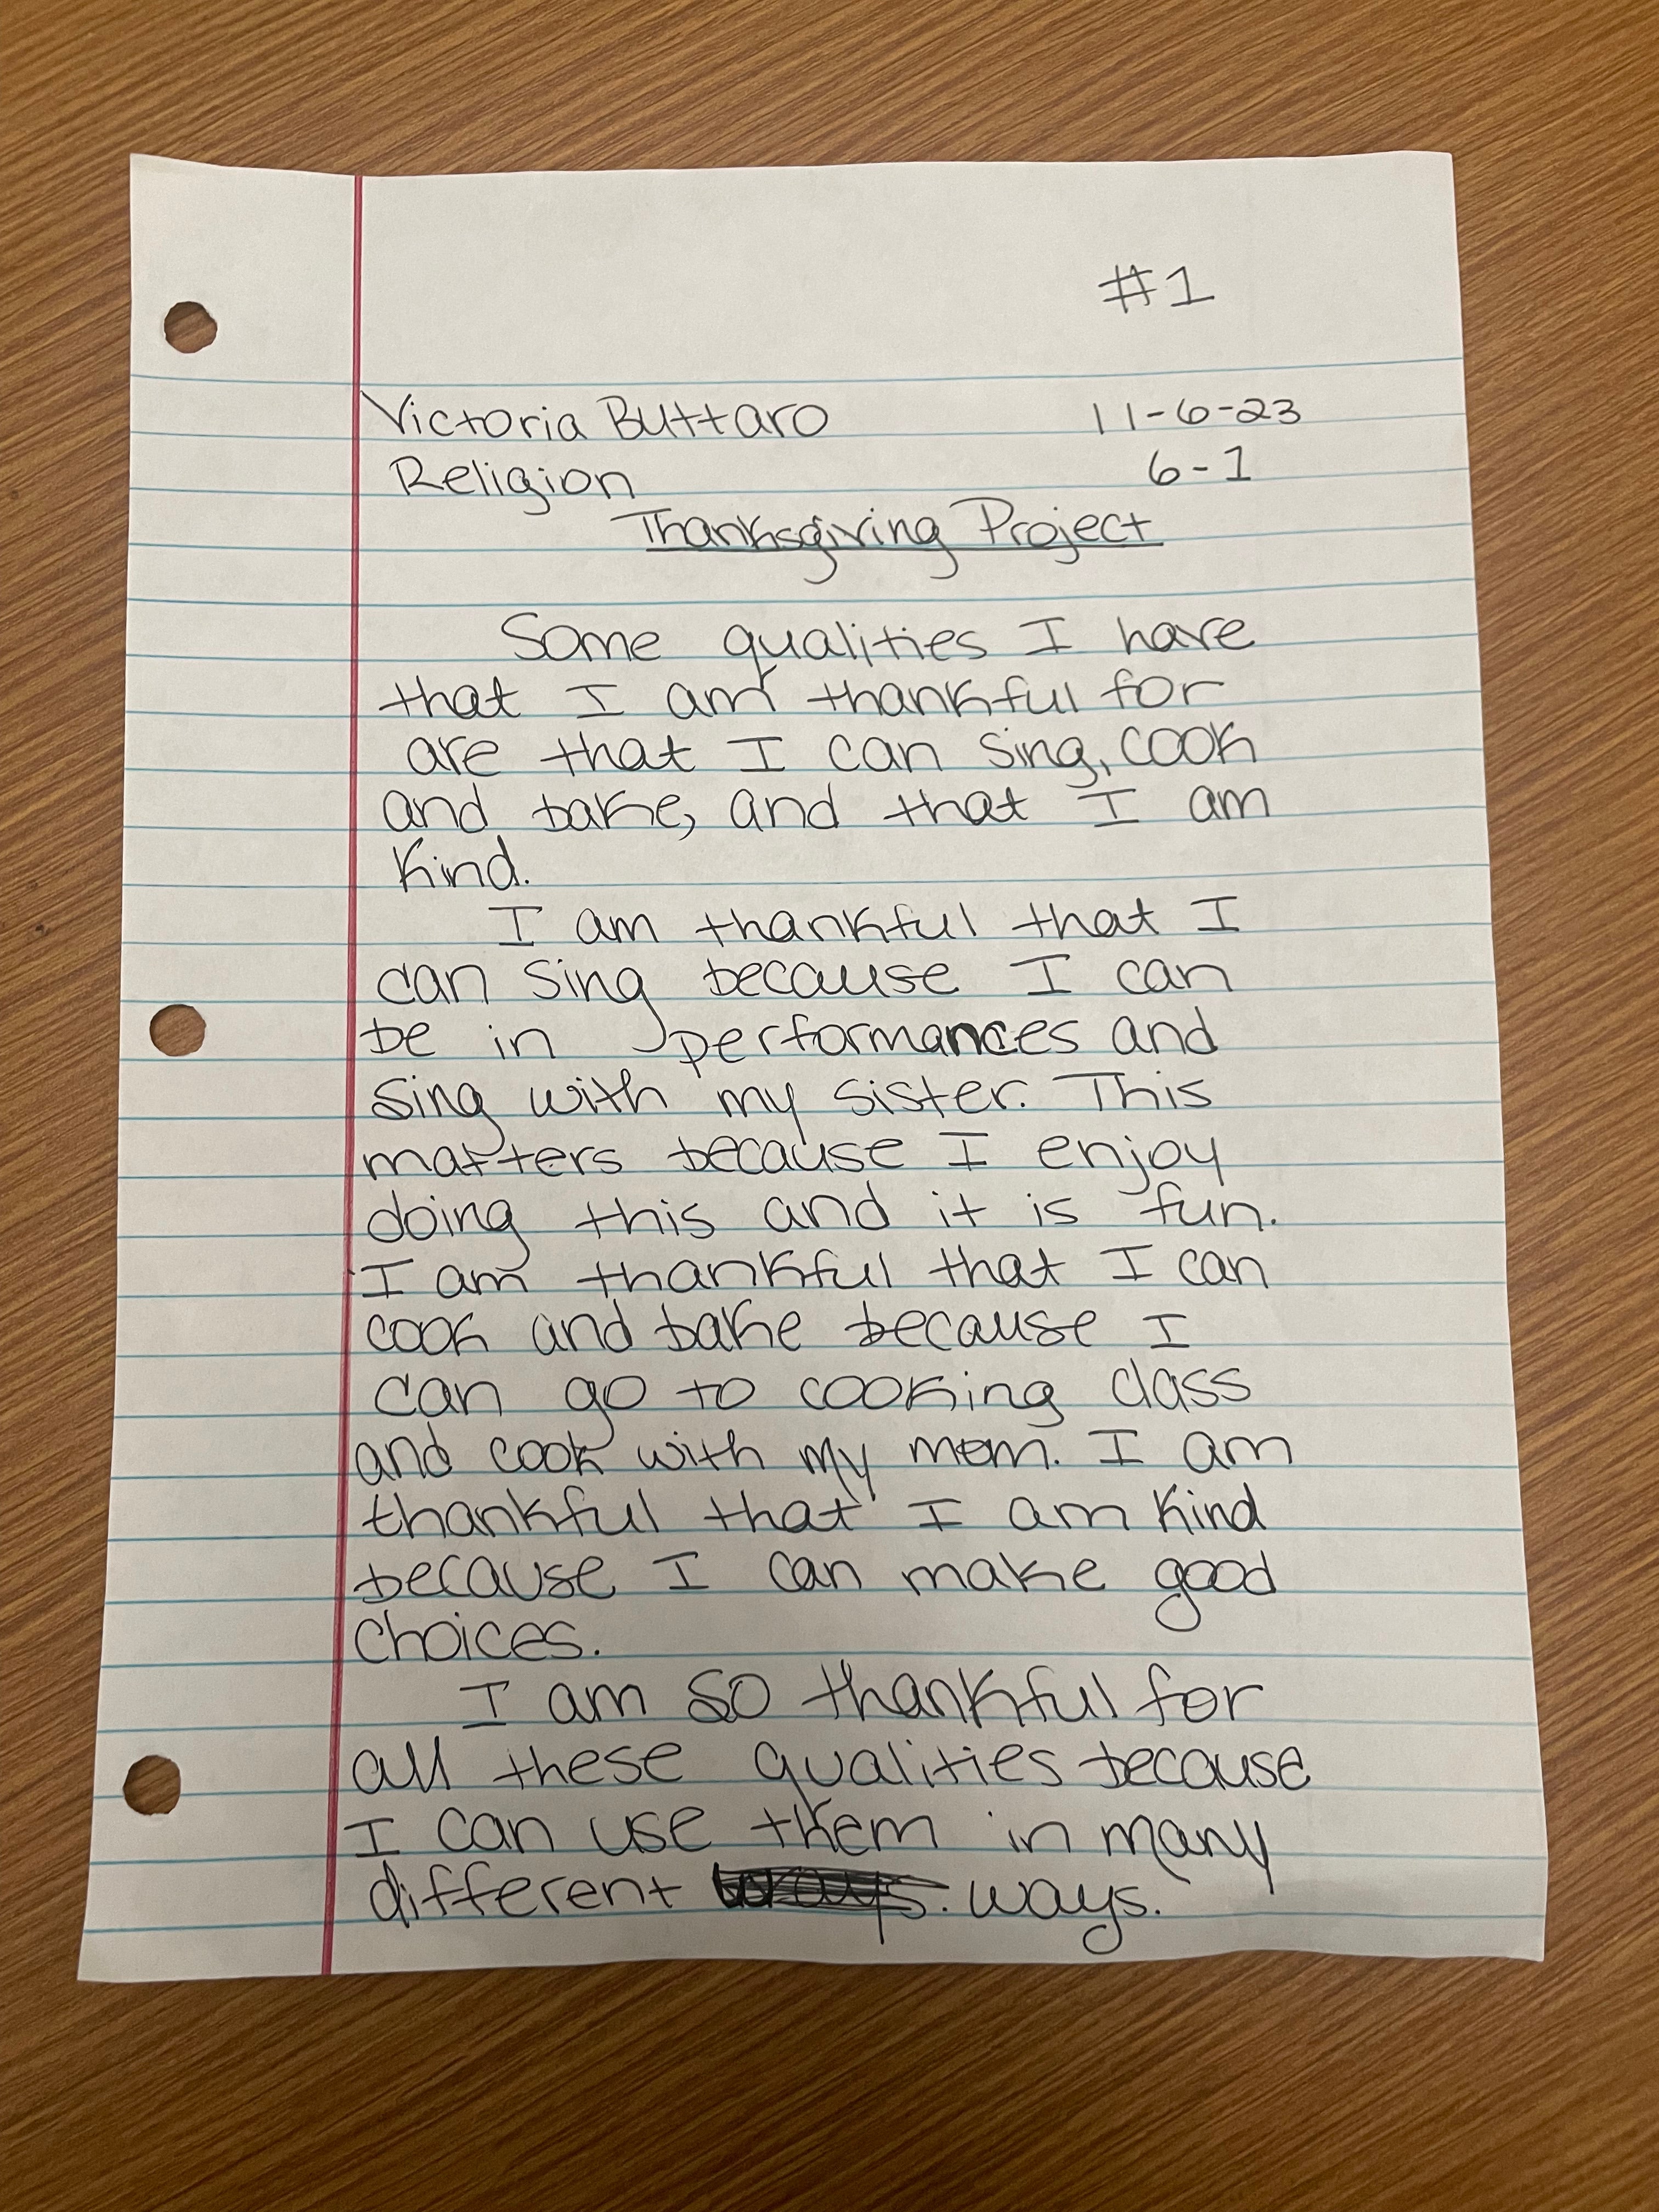 #1
Victoria Buttaro 11-6-23
Religion 6-1
Thanksgiving Project
Some qualities I have
that I am thankful for
are that I can sing, cook
and bake, and that I am
kind.
I am thankful that I
can sing because I can
be in performances and
sing with my sister. This
matters because I enjoy
doing this and it is fun.
I am thankful that I can
cook and bake because I
can go to cooking class
and cook with my mom. I am
thankful that I am kind
because I can make good
choices.
I am so thankful for
all these qualities because
I can use them in many
different ways. ways.